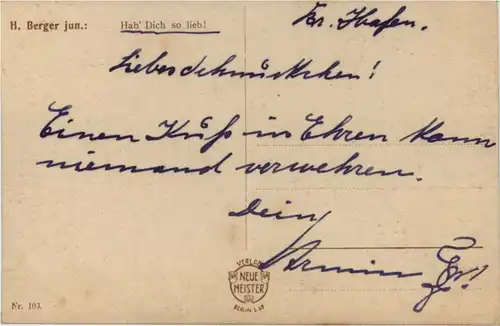 H. Berger jun.: Hab' Dich so lieb!
Br. Hafen.
Liebes Schnuckchen!
Einen Kuß in Ehren kann
niemand verwehren.
Dein
Armin
VERLAG
NEUE
MEISTER
BERLIN
Nr. 103.